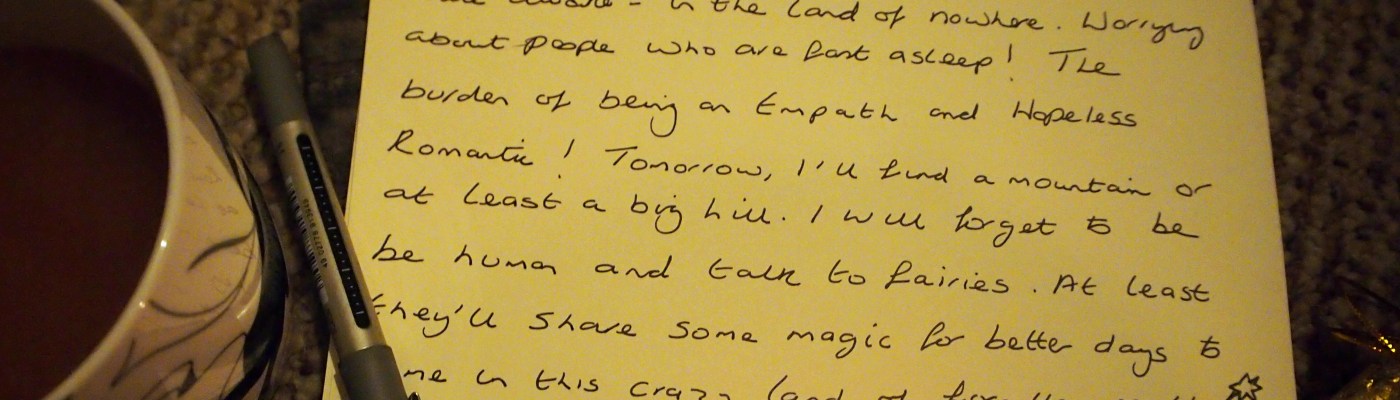 in the land of nowhere. Worrying
about people who are fast asleep! The
burden of being an Empath and Hopeless
Romantic! Tomorrow, I'll find a mountain or
at least a big hill. I will forget to be
be human and talk to fairies. At least
they'll share some magic for better days to
in this crazy land of